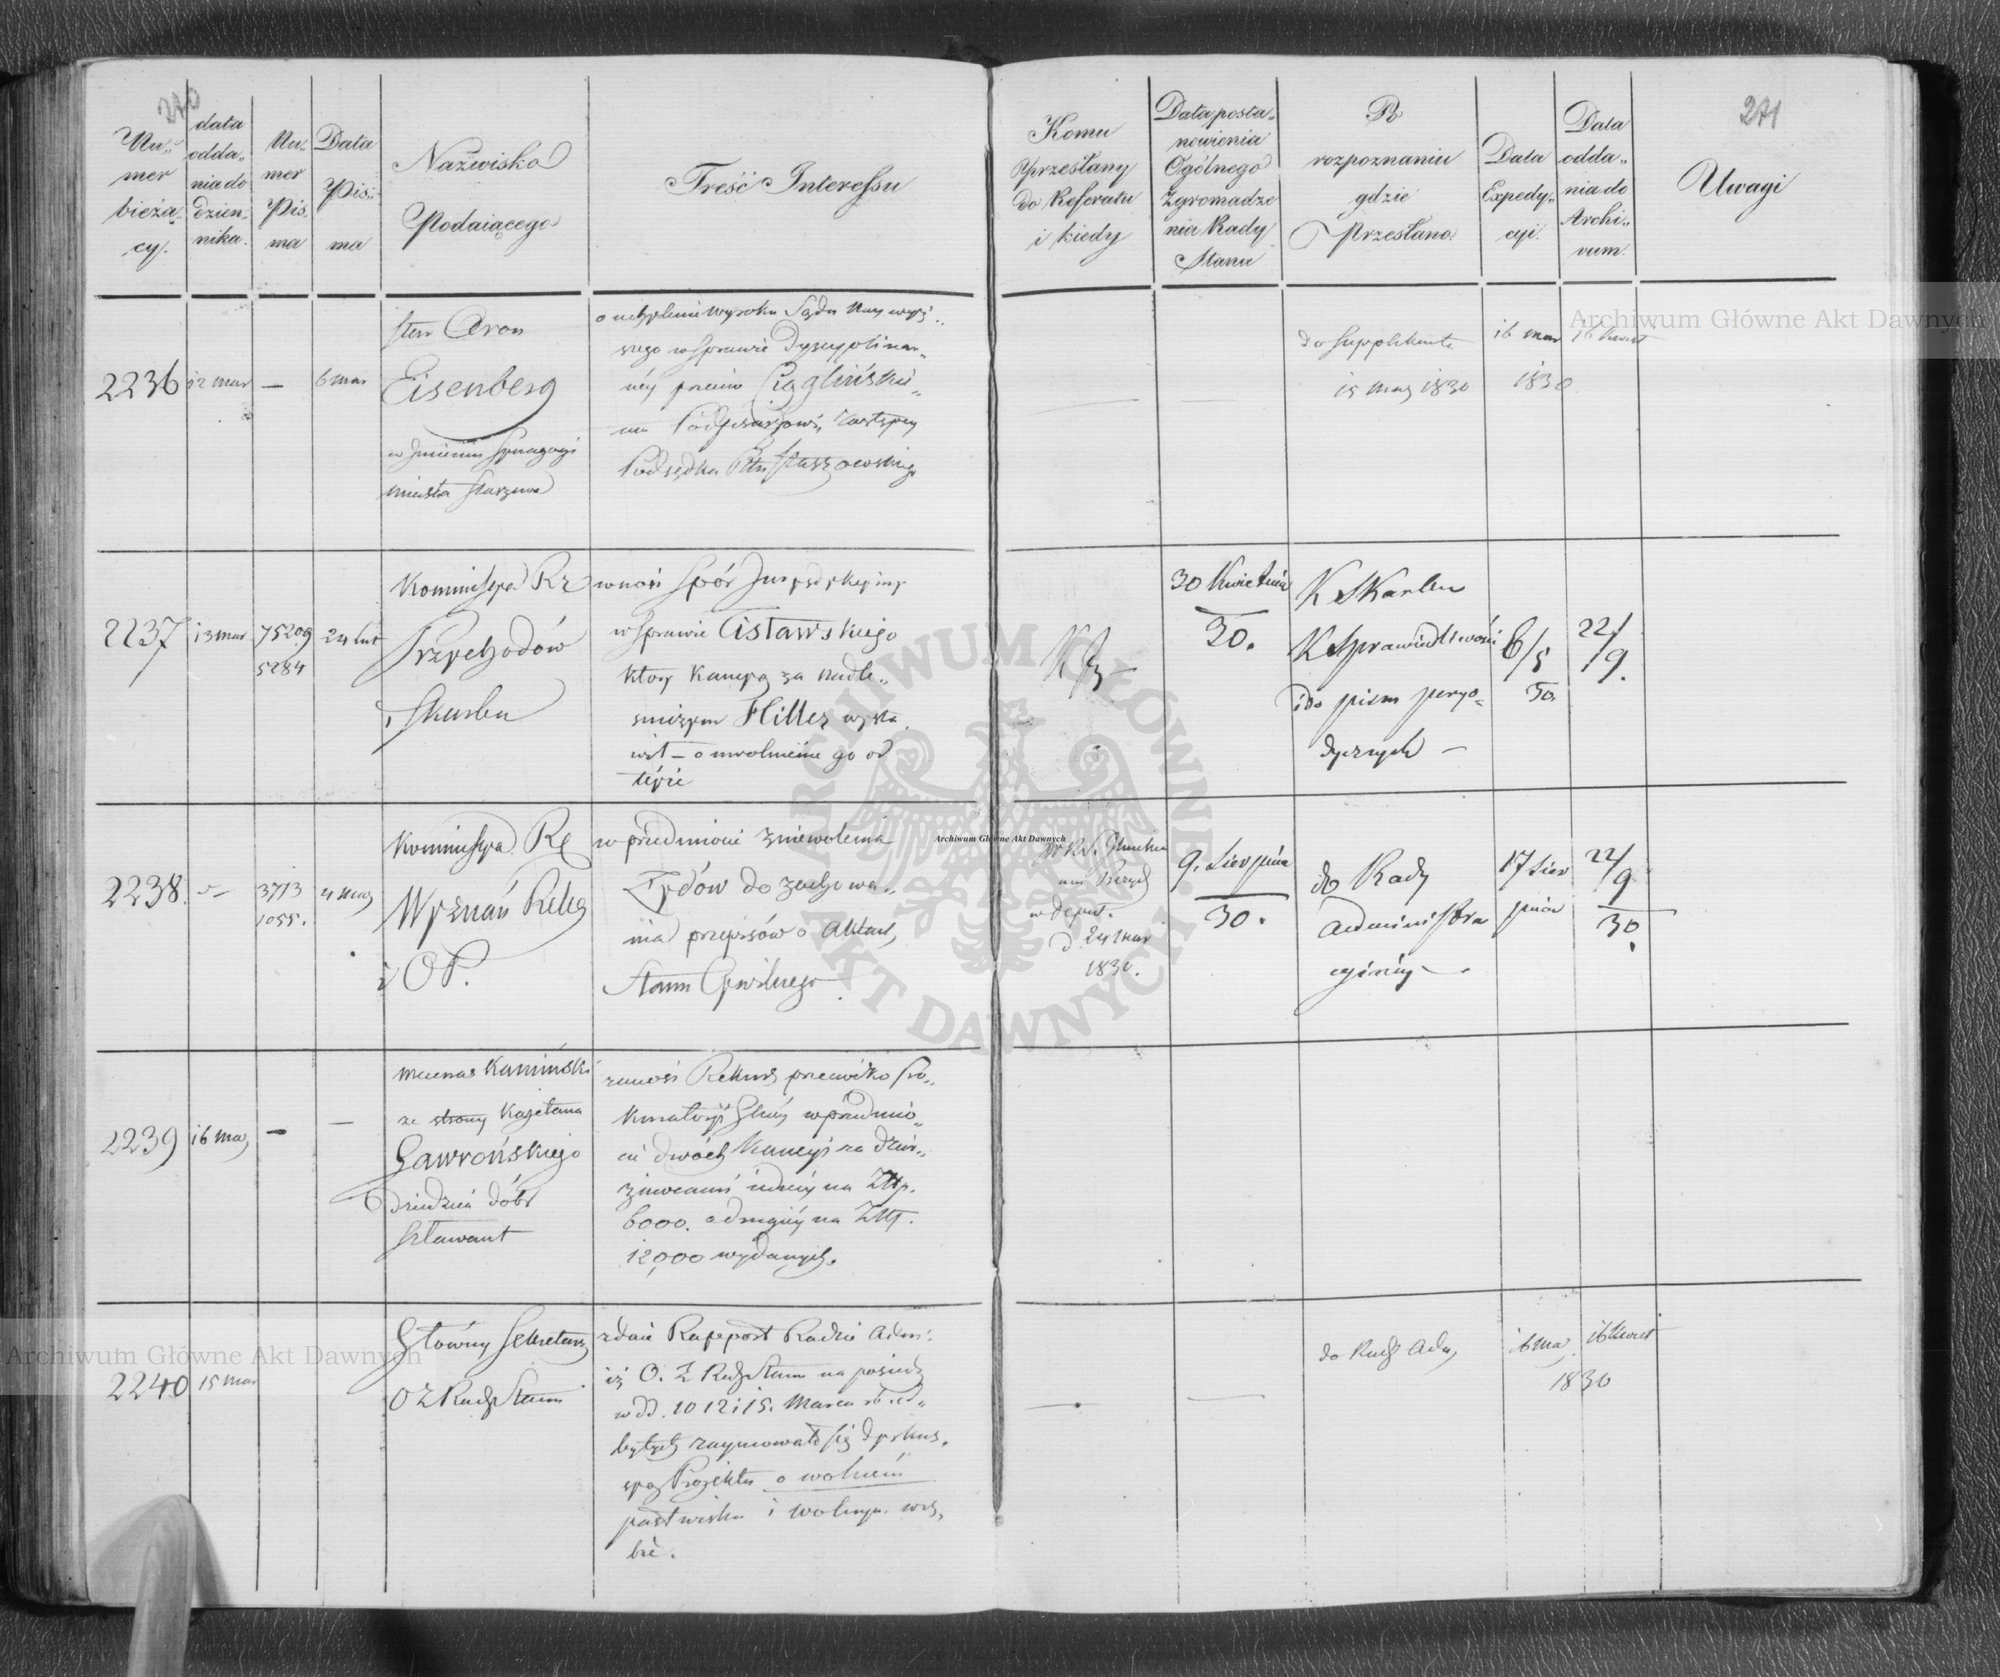 270
Nu-
mer
bieżą-
cy.
data
odda-
nia do
dzien-
nika.
Nu-
mer
Pis-
ma
Data
Pis-
ma
Nazwisko
Podaiącego
Treść Interessu
Komu
Przesłany
do Referatu
i kiedy
Data posta-
nowienia
Ogólnego
Zgromadze
nia Rady
Stanu
Po
rozpoznaniu
gdzie
Przesłano
Data
Expedy-
cyi.
Data
odda-
nia do
Archi-
vum.
271
Uwagi
2236
12 mar
—
6 mar
Aron
Eisenberg
w Imieniu Synagogi
miasta
o uchylenie wyroku Sądu Nay wyż-
szego w sprawie Dyscyplinar-
néy przeciw Ciąglińskie-
mu Podpisarzowi, zastępcy
Podsędka Pttu Staszowskiego
do supplikanta
15 mar 1830
16 mar
1830
16 kwiet
2237
13 mar
75209
5284
24 lut
Kommissya Rz
Przychodów
i Skarbu
wnosi Spór Jurysdykcyiny
w sprawie Cisławskiego
który kaucyą za nadle-
śniczym Hiller wysta
wił — o uwolnienie go od
téjże
30 kwietnia
30.
K Skarbu
K Sprawiedliwości
i do pism peryo-
dycznych —
6/5
30.
22/
9.
2238.
3713
1055.
4 mar
Kommissya Rz
Wyznań Relig
i O P.
w przedmiocie zniewolenia
Żydów do zachowa-
nia przepisów o Aktach,
Stanu Cywilnego
w deput.
d 24 mar
1830.
9. Sierpnia
30.
do Rady
Administra
cyinéy —
17 Sier
pnia
22/
9
30.
2239
16 mar
—
—
mecenas Kamiński
ze strony Kajetana
Gawrońskiego
Dziedzica dóbr
Sztawant
zanosi Rekurs przeciwko Pro-
kuratoryi Głnéy w przedmio-
cie dwóch kaucyi za dzier-
żawcami iednéy na Złtp.
6000. a drugiéy na Złtp.
12,000 wydanych.
2240
15 mar
Główny Sekretarz
O Z Rady Stanu
zdaie Rapport Radzie Adm:
iż O. Z Rady Stanu na posiedz
w dd. 10 12 i 15. Marca rb od-
bytych zaymowało się dyskus-
syą Projektu o wolném
pastwisku i wolnym wrę-
bie.
do Rady Adm,
16 mar
16 kwiet
1830
Archiwum Główne Akt Dawnych
Archiwum Główne Akt Dawnych
Archiwum Główne Akt Dawnych
ARCHIWUM GŁÓWNE AKT DAWNYCH